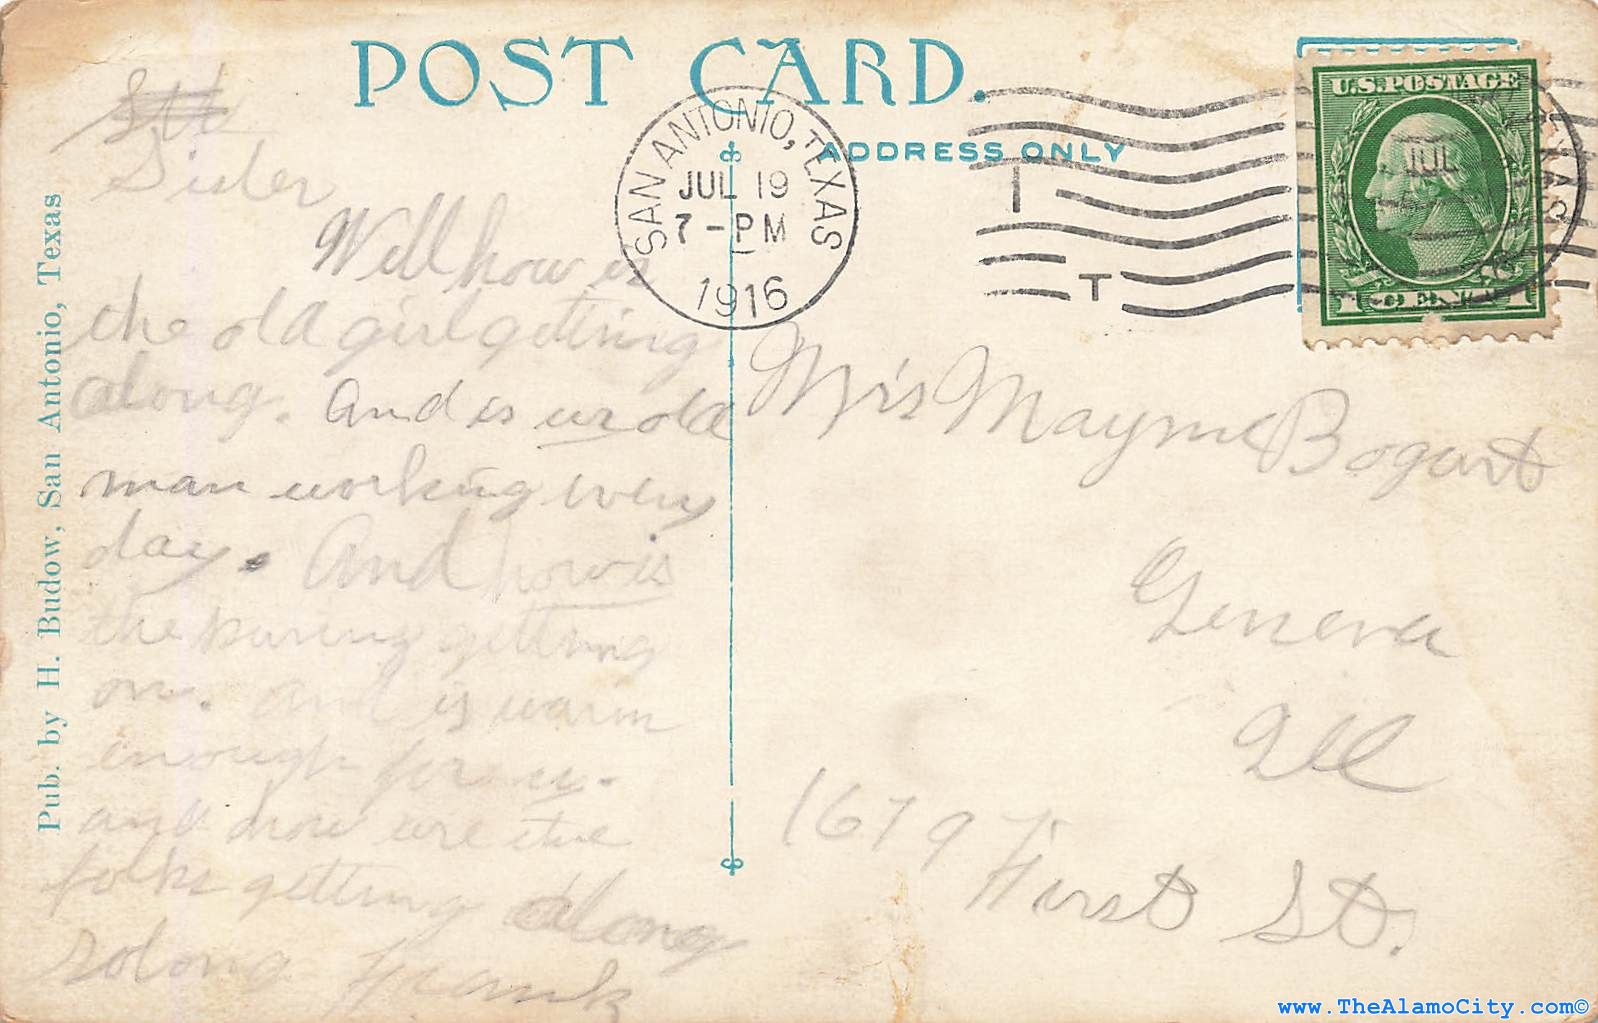 POST CARD.
ADDRESS ONLY
SAN ANTONIO, TEXAS
JUL 19
7-PM
1916
U.S. POSTAGE
1 CENT 1
JUL
Pub. by H. Budow, San Antonio, Texas
Sister
Well how is
the old girl getting
along. And is ur old
man working every
day. And how is
the getting
on. And is warm
enough for u.
and how are the
folks getting along
solong Frank
Mrs Mayme Bogart
Geneva
Ill
1679 First St.
www.TheAlamoCity.com©